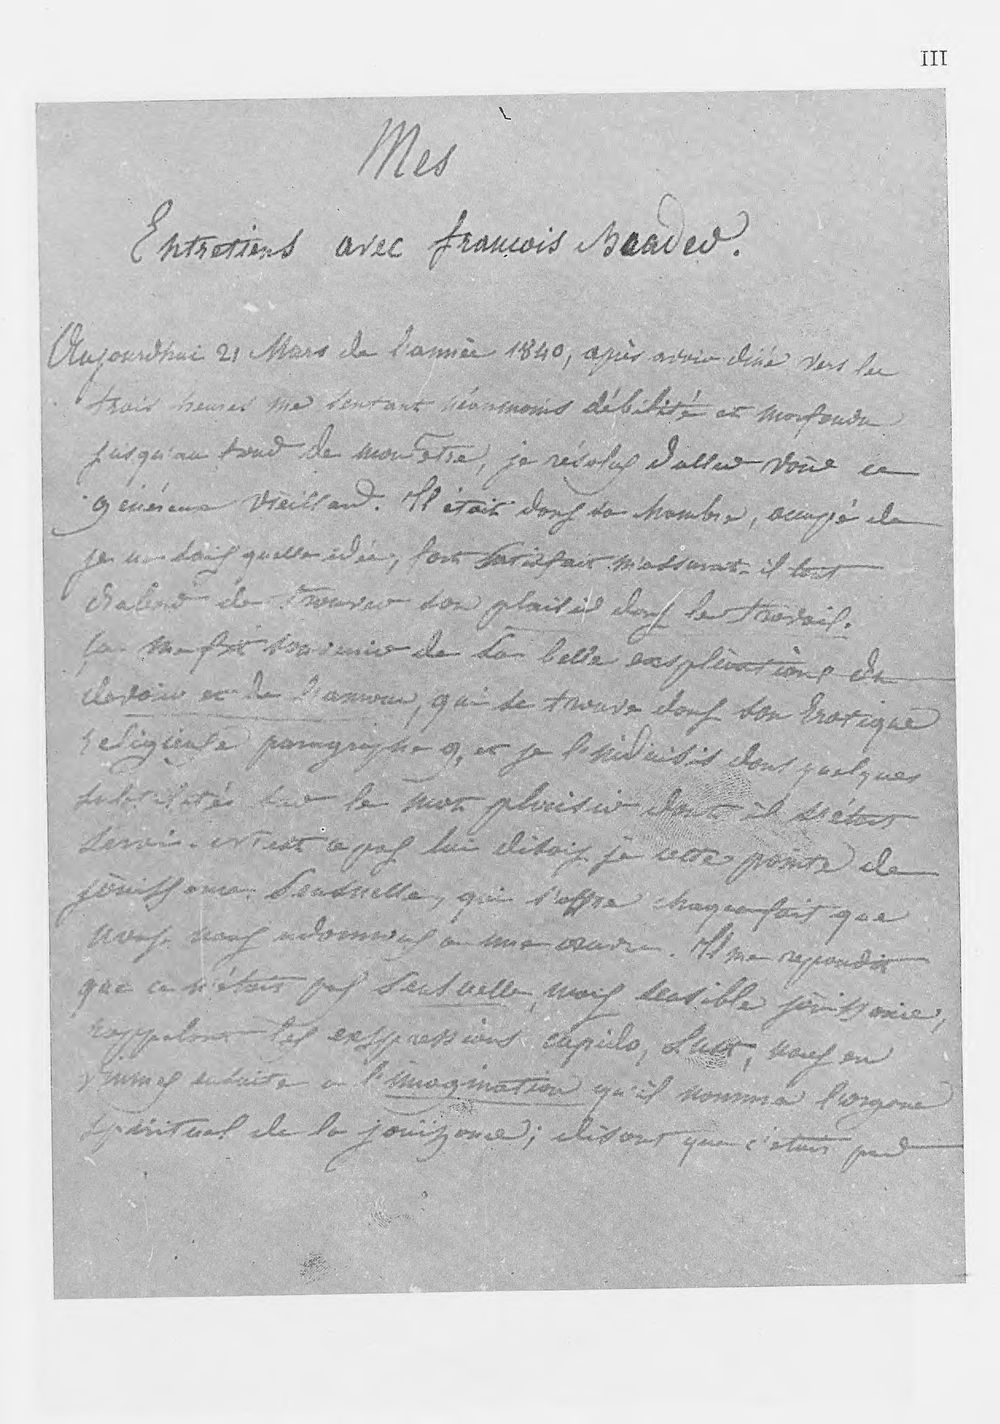 III
Mes
Entretiens avec françois Baader.
Aujourdhui 21 Mars de l'année 1840, après avoir diné vers les
trois heures me sentant néanmoins débilité et morfondu
jusqu'au fond de mon être, je résolus d'aller voir ce
généreux vieillard. Il était dans sa chambre, occupé de
je ne sais quelle idée, fort satisfait m'assurat-il tout
de trouver son plaisir dans le travail.
Ça me fit souvenir de sa belle exsplications du
devoir et de l'amour, qui se trouve dans son Erotique
religieuse paragraphe 9, et je l'induisis dans quelques
subtilités sur le mot plaisir dont il s'était
servi. n'est ce pas lui disais je cette pointe de
jouissance sensuelle, qui s'offre chaquefait que
nous nous adonnons a une œuvre. Il me repondit
que ce n'était pas sensuelle, mais sensible jouissance,
rappelant les exspressions cupido, Lust, nous en
vinmes ensuite a l'imagination qu'il nomma l'organe
spirituel de la jouissance; disant que c'était par